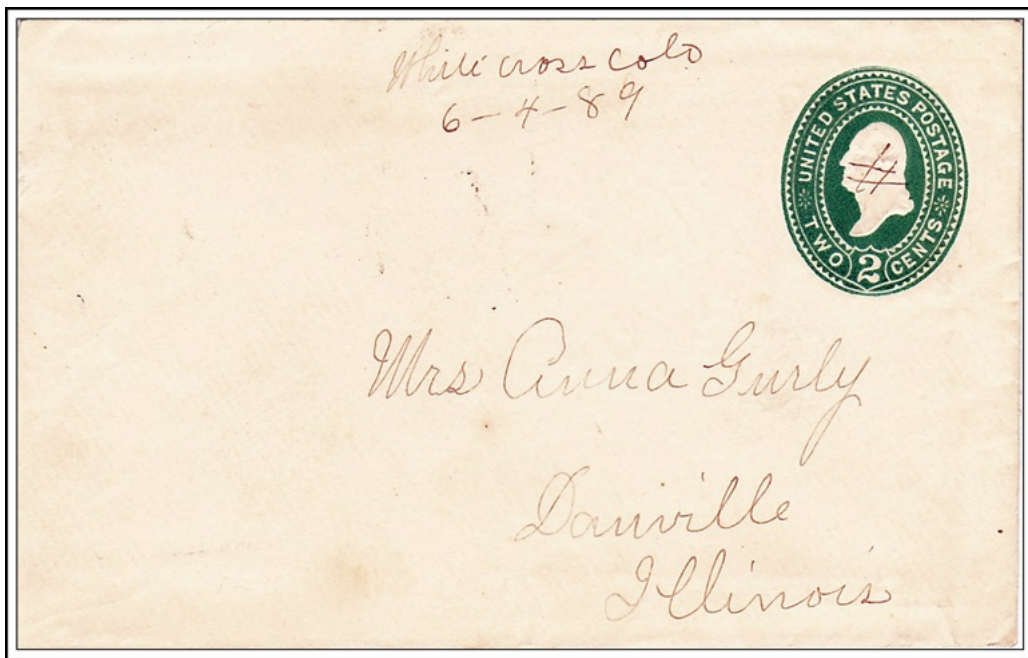 White cross Colo
6-4-89
UNITED STATES POSTAGE
TWO 2 CENTS
Mrs Anna Gurly
Danville
Illinois